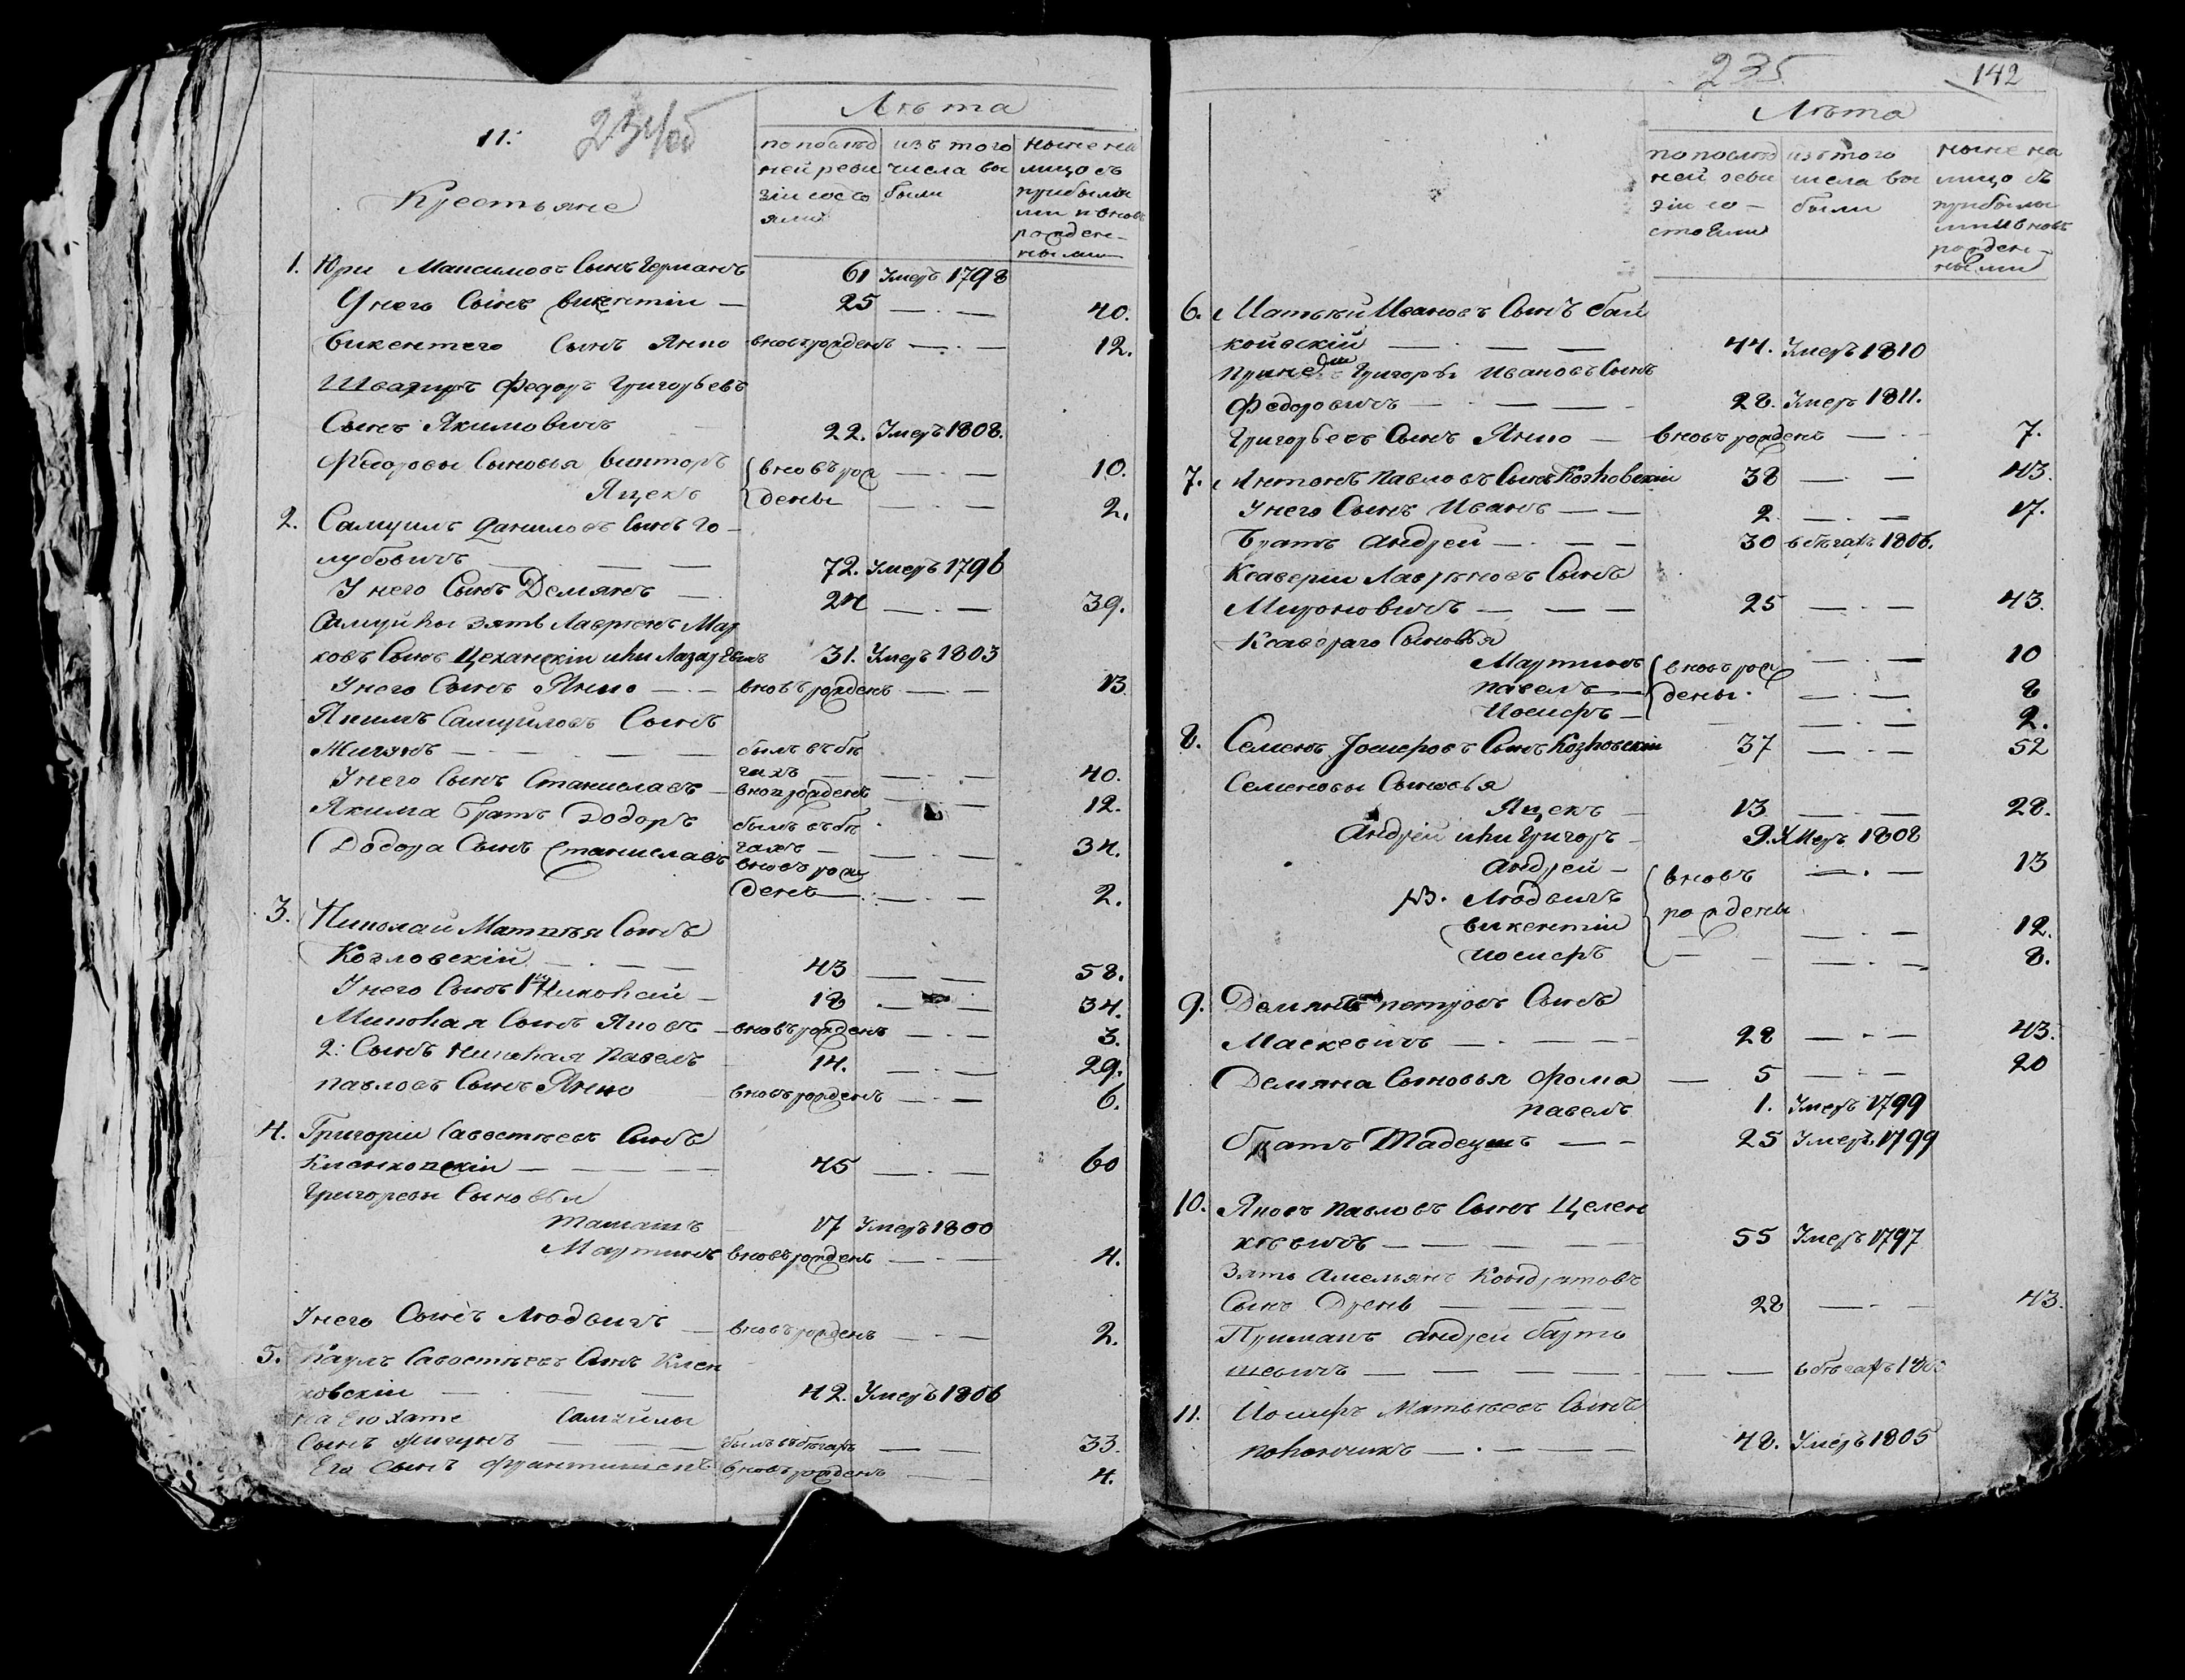 11:
234об
Лѣта
Крестьяне
по послѣд изъ того ныне на
ней реви числа вы лицо съ
зіи состо были прибылы
яли ми и вновь
рожден-
ными
1. Юри Максимовъ Сынъ Германъ 61 Умеръ 1798
У него Сынъ Викентіи — 25 — . — 40.
Викентего Сынъ Янко вновърожденъ — . — 12.
Швагиръ Федоръ Григорьевъ
Сынъ Якимовичъ 22. Умеръ 1808.
Федоровы Сыновья Викторъ вновъ рож — . — 10.
Яцекъ дены — . — 2.
2. Самуилъ Даниловъ Сынъ Го-
лубовичъ — — — 72. Умеръ 1796
У него Сынъ Демянъ — . 24 — . — 39.
Самуйлы зять Лавренъ Мар
ковъ Сынъ Цеханскіи или Лазаревичъ 31. Умеръ 1803
У него Сынъ Янко — . — вновърожденъ — . — 13
Якимъ Самуиловъ Сынъ
Жигунъ — . — — — былъ въ бѣ
гахъ — — . — 40.
У него Сынъ Станиславъ — вноврожденъ — . — 12.
Якима Братъ Додоръ былъ въ бѣ
гахъ — — . — 34.
Додора Сынъ Станиславъ вновъ рож
денъ — . — . — 2.
3. Николаи Маттѣя Сынъ
Козловскій — . — — 43 — . — 58.
У него Сынъ 1й Миколай — 18 . — — 34.
Миколая Сынъ Яковъ — вновърожденъ — . — 3.
2: Сынъ Николая Павелъ 14. — . — 29.
Павловъ Сынъ Янко вновърожденъ — . — 6.
4. Григоріи Савостѣевъ Сынъ
— — — — 45 — . — 60
Григоревы Сыновья
Тамашъ 17 Умеръ 1800
Мартинъ вновърожденъ — . — 4.
У него Сынъ Людвигъ — вновърожденъ — . — 2.
5. Карлъ Савостѣевъ Сынъ Клен
ковскіи — . — — 42. Умеръ 1806
На Его хате Самуйлы
Сынъ Жигунъ — — — былъ въ бѣгахъ — — 33.
Его Сынъ Францишекъ вновърожденъ — — 4.
235
142
Лѣта
по послѣд изъ того ныне на
ней реви числа вы лицо съ
зіи со- были прибылы
стояли ми и вновь
рожден-
ными
6. Матвѣй Ивановъ Сынъ Бай
ковскій — . — — 44. Умеръ 1810
Григоръи Ивановъ Сынъ
Федоровичъ — . — — - 28. Умеръ 1811.
Григорьевъ Сынъ Янко — вновърожденъ — . — 7.
7. Антонъ Павловъ Сынъ Козловскіи 38 — . — 43.
У него Сынъ Иванъ — — 2 — . — 17.
Братъ Андреи — . — — 30 въ бѣгахъ 1806.
Ксаверіи Лаврыновъ Сынъ
Мироновичъ — — — 25 — . — 43.
Ксавераго Сыновья
Мартинъ вновъ рож — . — 10
Павелъ — дены. — . — 8
Иосифъ — — . — 2.
8. Семенъ Иосифовъ Сынъ Козловскіи 37 — . — 52
Семеновы Сыновья
Яцекъ — 13 — . — 28.
Андреи или Григоръ — 9. Умеръ 1808
Андреи — вновъ — . — 13
Людвигъ рождены
Викентіи — — . — 12.
Иосифъ — — . — 8.
9. Демянъ Петровъ Сынъ
Маскевичъ — . — — 28 — . — 43.
Демяна Сыновья Фома — 5 — . — 20
Павелъ 1. Умеръ 1799
Братъ Тадеушъ — — 25 Умеръ 1799
10. Яковъ Павловъ Сынъ Целен
кевичъ — — — — 55 Умеръ 1797
Зять Амельянъ Кондратовъ
Сынъ Дрень — — — — 28 — . — 43.
Примакъ Андреи Барть
шевичъ — — — — — — въ бѣгахъ
11. Иосифъ Матвѣевъ Сынъ
Полончикъ — . — — — 48. Умеръ 1805